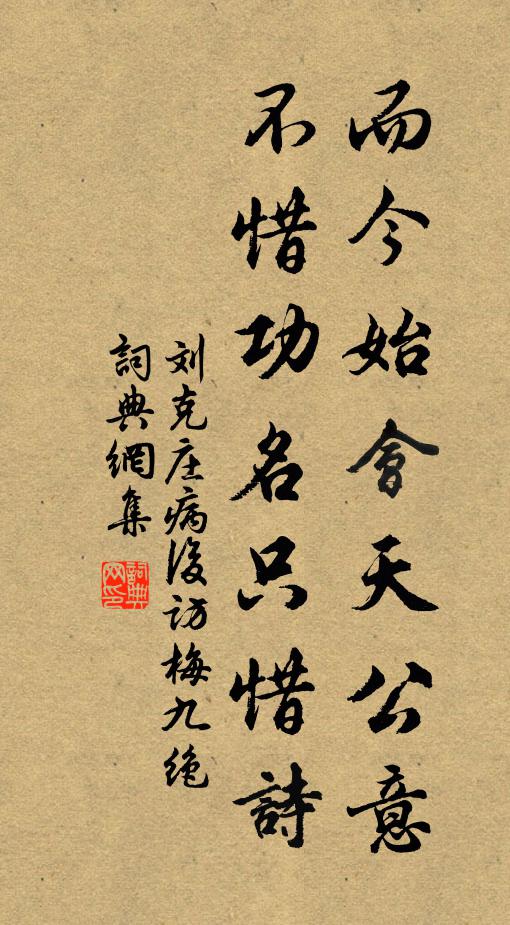 而今始會天公意
不惜功名只惜詩
刘克庄病後访梅九绝
詞典網集
詞典
网印